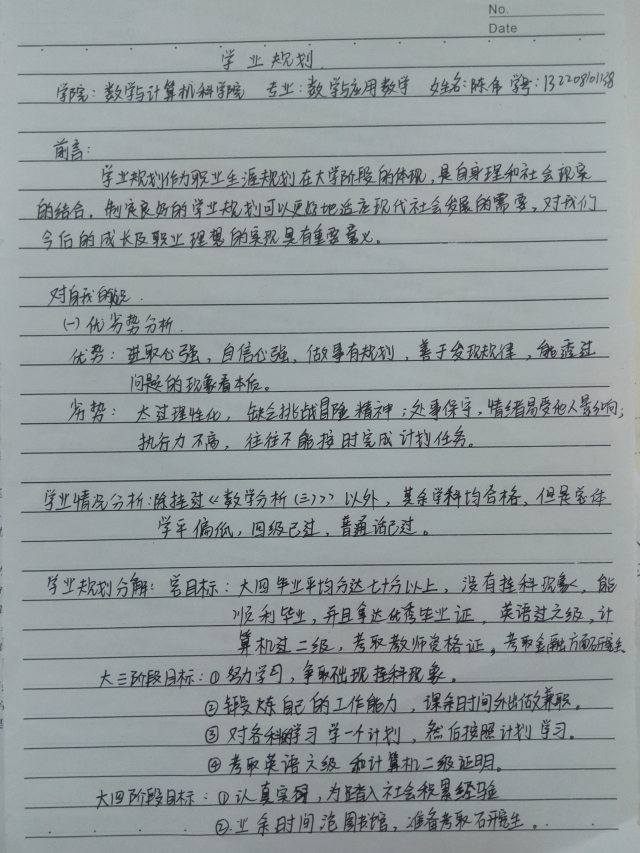 No.
Date
学业规划
学院：数学与计算机科学院 专业：数学与应用数学 姓名：陈伟 学号：1322080138
前言：
学业规划作为职业生涯规划在大学阶段的体现，是自身理和社会现实
的结合。制定良好的学业规划可以更好地适应现代社会发展的需要，对我们
今后的成长及职业理想的实现具有重要意义。
对自我的
(一)优劣势分析
优势：进取心强，自信心强，做事有规划，善于发现规律，能透过
问题的现象看本后。
劣势：太过理性化，缺乏挑战冒险精神；处事保守，情绪易受他人影响；
执行力不高，往往不能按时完成计划任务。
学业情况分析：除挂过《数学分析(三)》以外，其余学科均合格，但是总体
学平偏低，四级已过，普通话已过。
学业规划分解：总目标：大四毕业平均分达七十分以上，没有挂科现象，能
顺利毕业，并且拿达优秀毕业证，英语过六级，计
算机过二级，考取教师资格证。考取金融方面研究生
大三阶段目标：①努力学习，争取础现挂科现象。
②锻炼自己的工作能力，课余时间外出做兼职。
③对各科学习学一个计划，然后按照计划学习。
④考取英语六级和计算机二级证明。
大四阶段目标：①认真实习，为踏入社会积累经验
②业余时间泡图书馆，准备考取研究生。